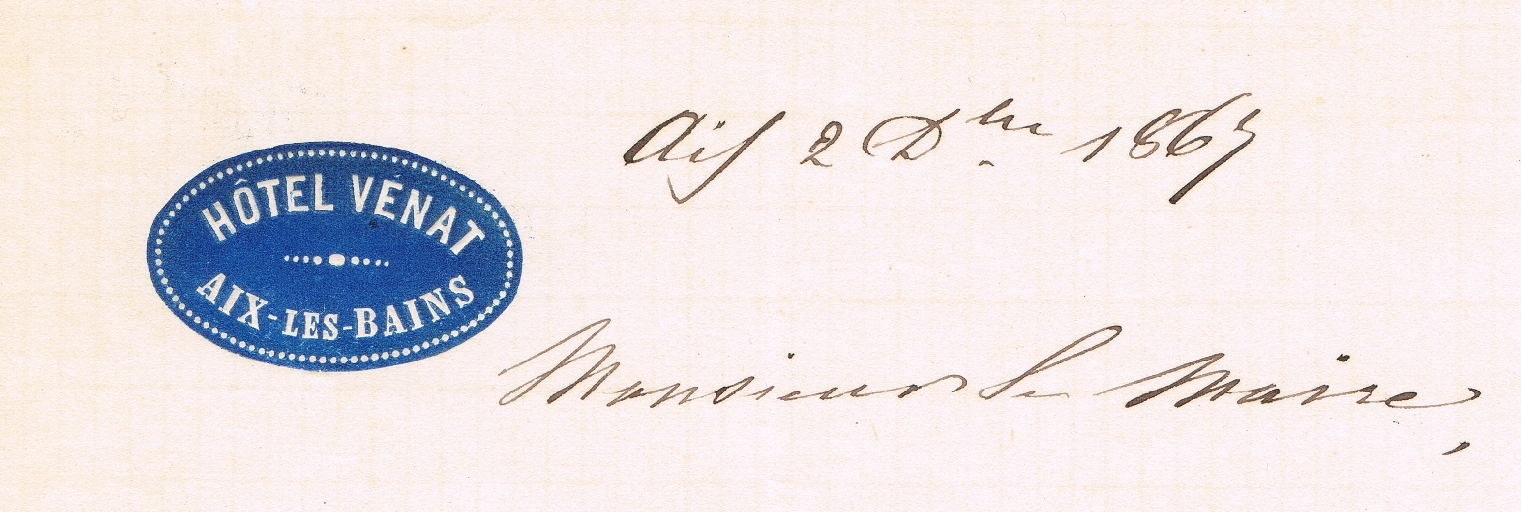 HÔTEL VÉNAT
AIX-LES-BAINS
Aix 2 Dbre 1867
Monsieur le Maire,